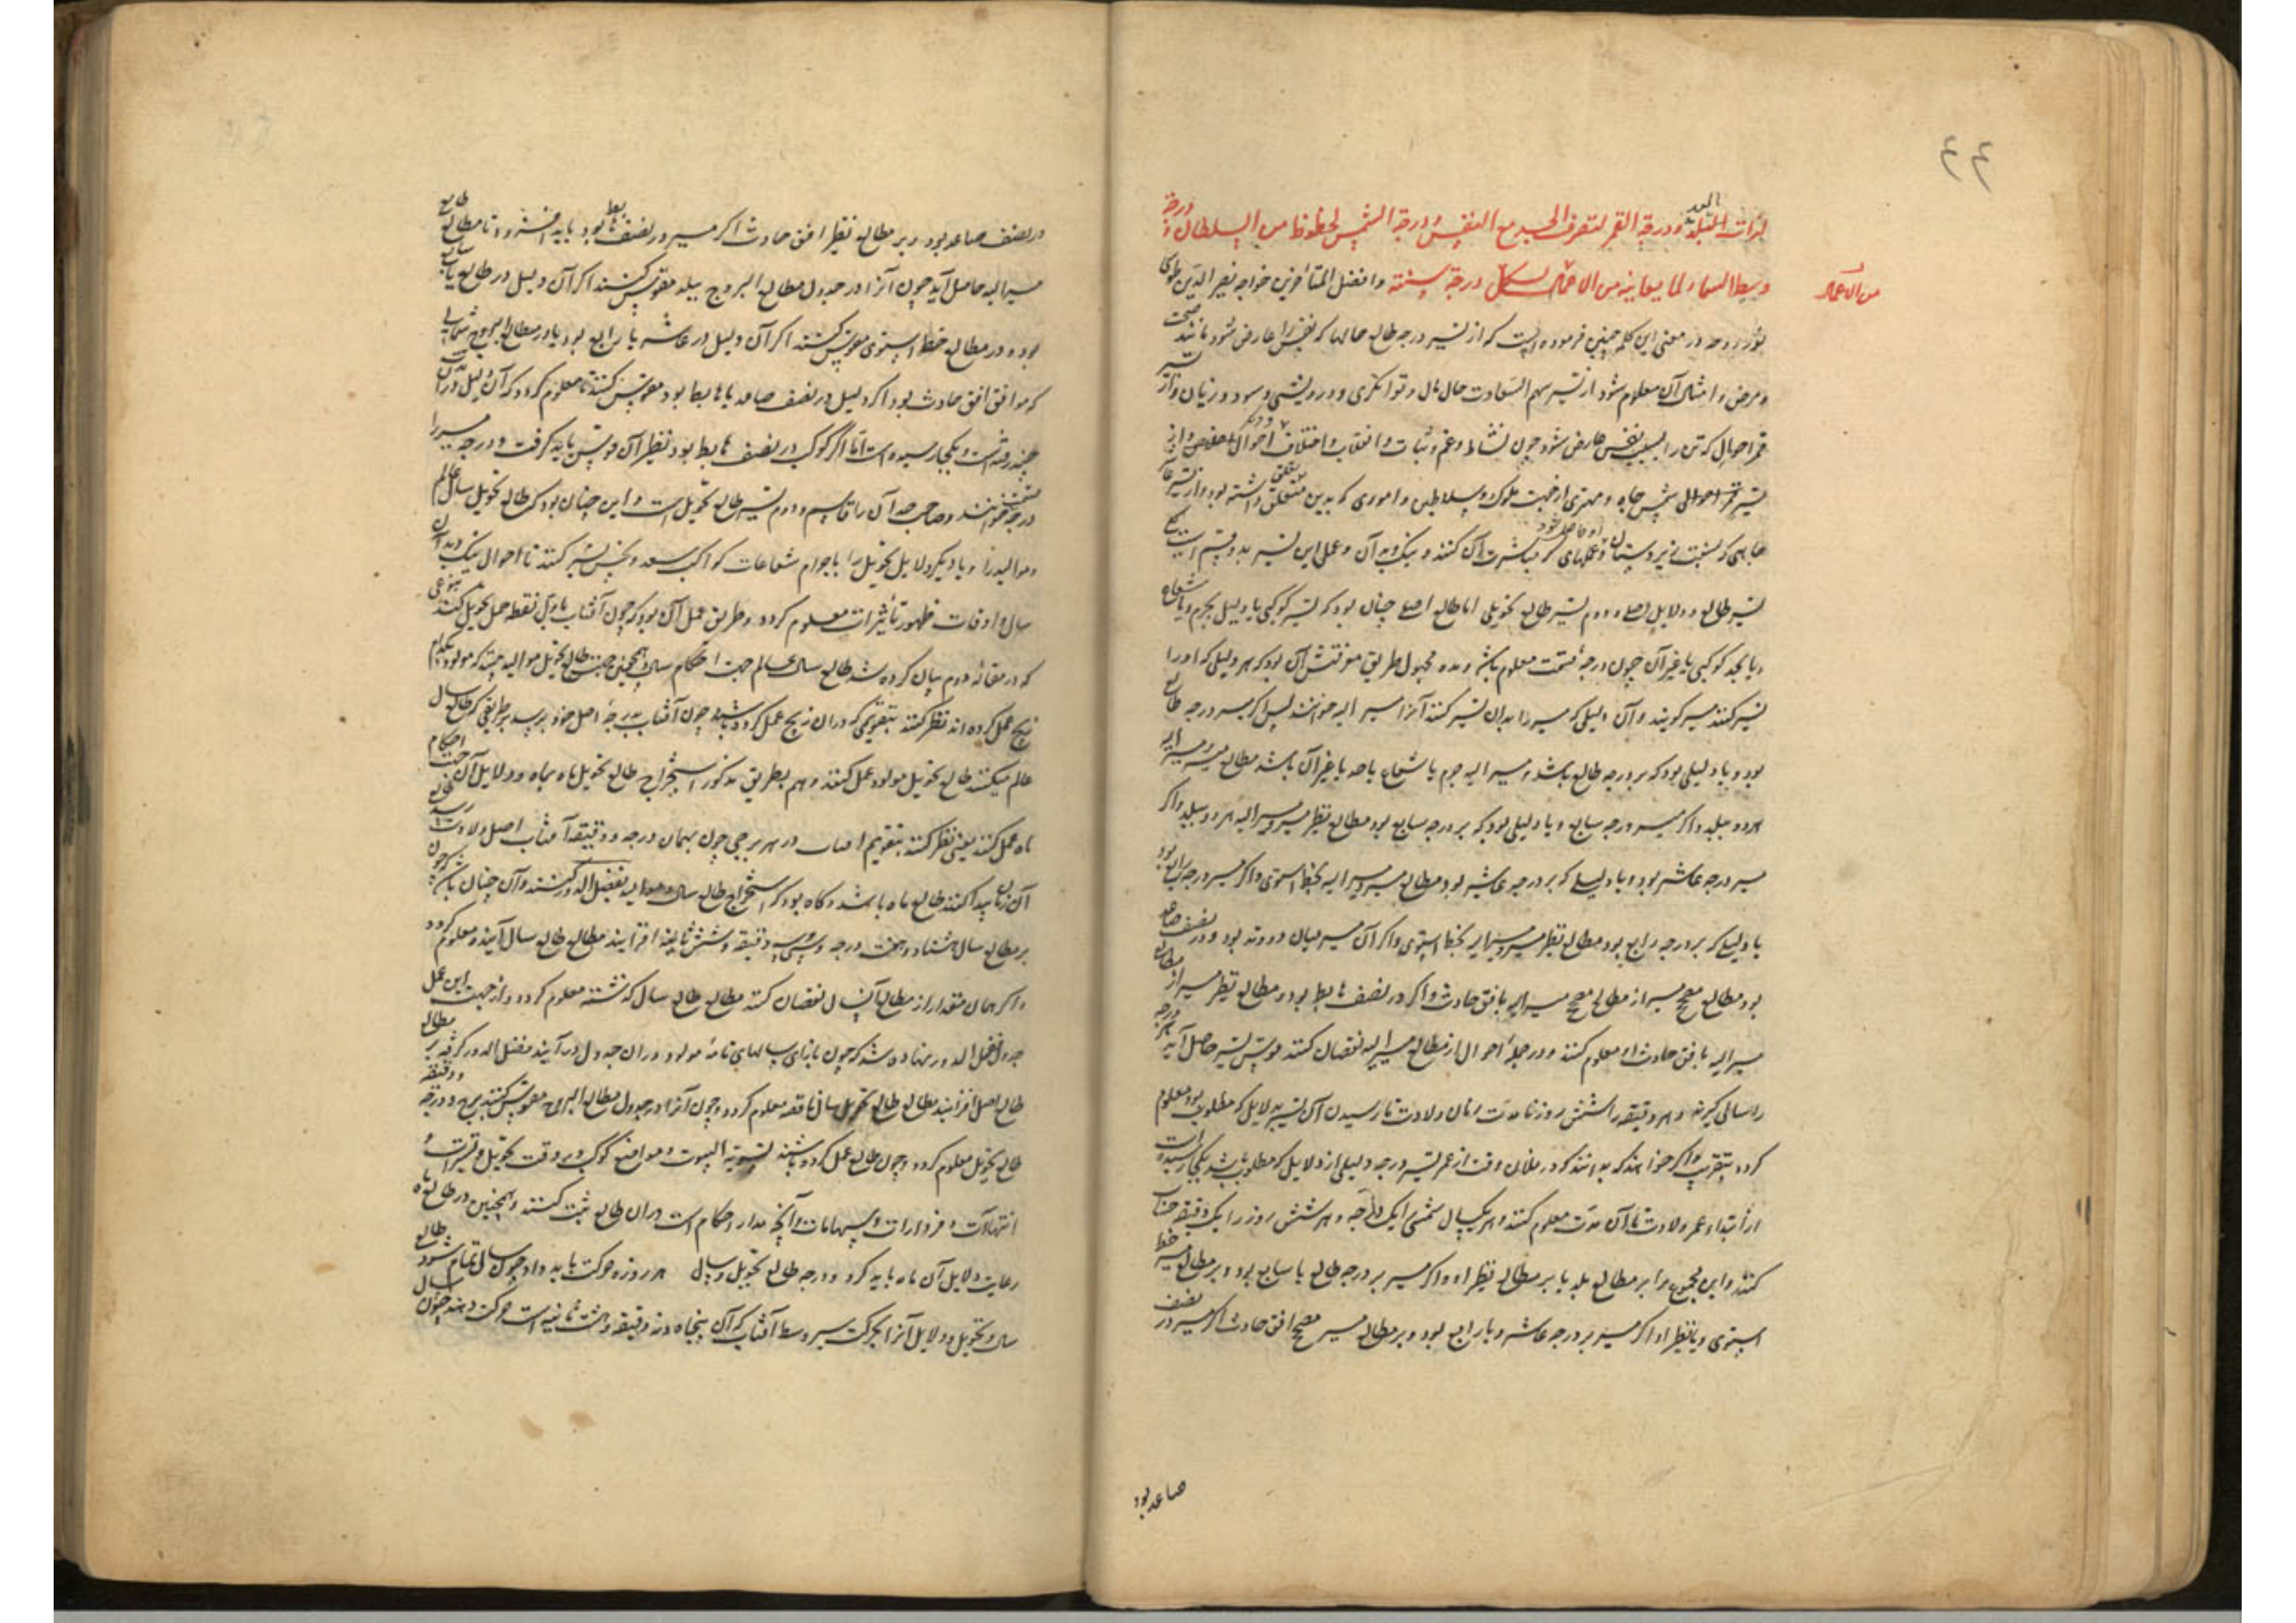 ٤٤
لذات البلد ودرجة القمر لتصرف الجسد مع النفس ودرجة الشمس لحظوظ من السلطان ودرجة
وسط السماء لما يعاينه من الاعمال لكل درجة سنة وافضل المتأخرین خواجه نصیر الدین طوسی
من الاعمال
نور روحه در معنی این کلمه چنین فرموده است که از تسیر درجه طالع حالها که نفس را عارض شود مانند صحت
و مرض و امثال آن معلوم شود از تسیر سهم السعادت حال مال و توانگری و درویشی و سود و زیان و از تسیر
قمر احوال که تن را بسبب نفس عارض شود چون نشاط و غم و ثبات و انقلاب و اختلاف احوال و از
تسیر شمس جاه و مهتری از جهت ملوک و سلاطین و اموری که بدین متعلق بود و از تسیر عاشر
عملهای که مباشرت آن کنند و نیک و بد آن و عمل این تسیر بدو قسم است یکی
تسیر طالع و دلایل اصلی و دوم تسیر طالع تحویلی اما طالع اصلی چنان بود که تسیر کوکبی یا دلیلی بجرم و یا شعاع
و یا بحد کوکبی یا غیر آن چون درجه قسمت معلوم باشد و مده مجهول طریق معرفتش آن بود که هر دلیلی که او را
تسیر کنند مسیر گویند و آن دلیلی که مسیر را بدان تسیر کنند آنرا مسیر الیه خوانند پس اگر مسیر درجه طالع
بود و یا دلیلی بود که بر درجه طالع باشد و مسیر الیه جرم یا شعاع یا حد یا غیر آن باشد مطالع مسیر و مسیر الیه
هر دو ببلد و اگر مسیر درجه سابع و یا دلیلی بود که بر درجه سابع بود مطالع نظیر مسیر و مسیر الیه هر دو ببلد و اگر
مسیر درجه عاشر بود و یا دلیلی که بر درجه عاشر بود مطالع مسیر و مسیر الیه بخط استوی و اگر مسیر درجه رابع بود
یا دلیلی که بر درجه رابع بود مطالع نظیر مسیر و مسیر الیه بخط استوی و اگر آن مسیر میان دو وتد بود و در نصف صاعد
بود مطالع مصحح مسیر از مطالع مصحح مسیر الیه بافق حادث و اگر در نصف هابط بود و مطالع نظیر مسیر از مطالع
مسیر الیه بافق حادث او معلوم کنند و در جمله احوال از مطالع مسیر الیه نقصان کنند قوس تسیر حاصل آید هر درجه
را سالی گیرند و هر دقیقه را شش روز تا مدت زمان ولادت تا رسیدن آن تسیر بدلایل که مطلوب بود معلوم
گردد بتقریب و اگر خواهند که بدانند که در فلان وقت از عمر تسیر درجه دلیلی از دلایل که مطلوب باشد بکجا رسیده است
از ابتداء عمر ولادت تا آن مدت معلوم کنند و هر یک سال شمسی را یک درجه و هر شش روز را یک دقیقه حساب
کنند و این مجموع را بر مطالع بلد یا بر مطالع نظیر او اگر مسیر بر درجه طالع یا سابع بود و بر مطالع مسیر خط
استوی و یا نظیر او اگر مسیر بر درجه عاشر و یا رابع بود و بر مطالع مسیر مصحح افق حادث اگر مسیر در نصف
صاعد بود
در نصف صاعد بود و بر مطالع نظیر افق حادث اگر مسیر در نصف هابط بود باید افزود تا مطالع
مسیر الیه حاصل آید چون آنرا در جدول مطالع البروج ببلد مقوس کنند اگر آن دلیل در طالع یا سابع
بود و در مطالع خط استوی مقوس کنند اگر آن دلیل در عاشر یا رابع بود یا در مطالع البروج
که موافق افق حادث بود اگر دلیل در نصف صاعد یا هابط بود مقوس کنند تا معلوم گردد که آن دلیل در آن مدت
چند رفته است و بکجا رسیده است اما اگر کوکب در نصف هابط بود نظیر آن قوس باید گرفت و درجه مسیر را
درجه قسمت خوانند و صاحب حد آن را قاسم و دوم تسیر طالع تحویل است و این چنان بود که طالع تحویل سال عالم
و موالید را و یا دیگر دلایل تحویل را با جرام شعاعات کواکب سعد و نحس تسیر کنند تا احوال نیک و بد آن
سال و اوقات ظهور تأثیرات معلوم گردد و طریق عمل آن بود که چون آفتاب باول نقطه حمل تحویل کند بنوعی
که در مقاله دوم بیان کرده شد طالع سال عالم جهت احکام سال و همچنین جهت طالع تحویل موالید که مولود بکدام
زیج عمل کرده اند نظر کنند بتقویمی که در آن زیج عمل کرده باشند چون آفتاب بدرجه اصل خود برسد بر طریقی که طالع سال
عالم میکنند طالع تحویل مولود عمل کنند و هم بطریق مذکور استخراج طالع تحویل ماه بماه و دلایل آن جهت احکام
ماه عمل کنند یعنی نظر کنند بتقویم آفتاب در هر برجی چون بهمان درجه و دقیقه آفتاب اصل ولادت رسد
آن زمان پیدا کنند طالع ماه باشد و گاه بود که استخراج طالع سال موالید بفضل الدور کنند و آن چنان باشد که چون
بر مطالع سال هشتاد و هفت درجه و سی و دقیقه و شش ثانیه افزایند مطالع طالع سال آینده معلوم گردد
و اگر همان مقدار از مطالع آن سال نقصان کنند مطالع طالع سال گذشته معلوم گردد و از جهت این عمل
جدول فضل الدور نهاده شد که چون بازای سالهای تامه مولود در آن جدول در آیند فضل الدور گرفته بر مطالع
طالع اصل افزایند مطالع طالع تحویل سال ناقصه معلوم گردد و چون آنرا در جدول مطالع البروج مقوس کنند برج و درجه و دقیقه
طالع تحویل معلوم گردد و چون طالع عمل کرده باشند تسویة البیوت و مواضع کوکب در وقت تحویل و تسیرات
انتهاآت و فردارات و سهامات و آنچه مدار احکام است در آن طالع ثبت کنند و همچنین در طالع ماه
رعایت دلایل آن ماه باید کرد و درجه طالع تحویل سال هر روزه حرکت باید داد چون سال تمام شود طالع
سال و تحویل و دلایل آنرا بحرکت مسیر وسط آفتاب که آن پنجاه و نه دقیقه و هشت ثانیه است حرکت دهند چون سال